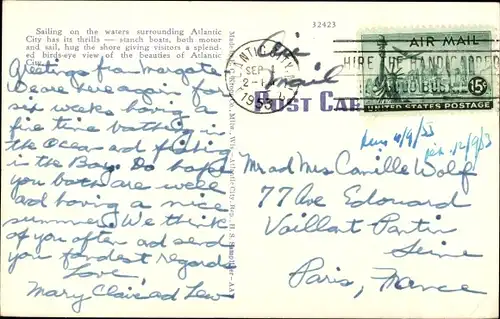 Sailing on the waters surrounding Atlantic
City has its thrills — stanch boats, both motor
and sail, hug the shore giving visitors a splend-
ed birds-eye view of the beauties of Atlantic
City.
Greetings from Margate
We are here again for
six weeks having a
fine time bathing in
the Ocean and fishing
in the Bay. Do hope
you both are well
and having a nice
summer. We think
of you often and send
you fondest regards
Love,
Mary Claire and Lew
32423
Air
Mail
POST CAR
ATLANTIC CITY
SEP 1
2-
1953
HIRE THE HANDICAPPED
GOOD BUS
AIR MAIL
15¢
UNITED STATES POSTAGE
9/53
Mr and Mrs Camille Wolf
77 Ave Edouard
Vaillant Pantin
Seine
Paris, France